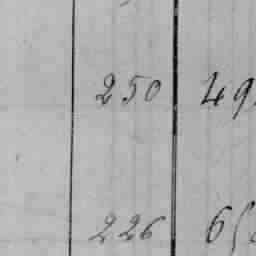 250 49
226 65